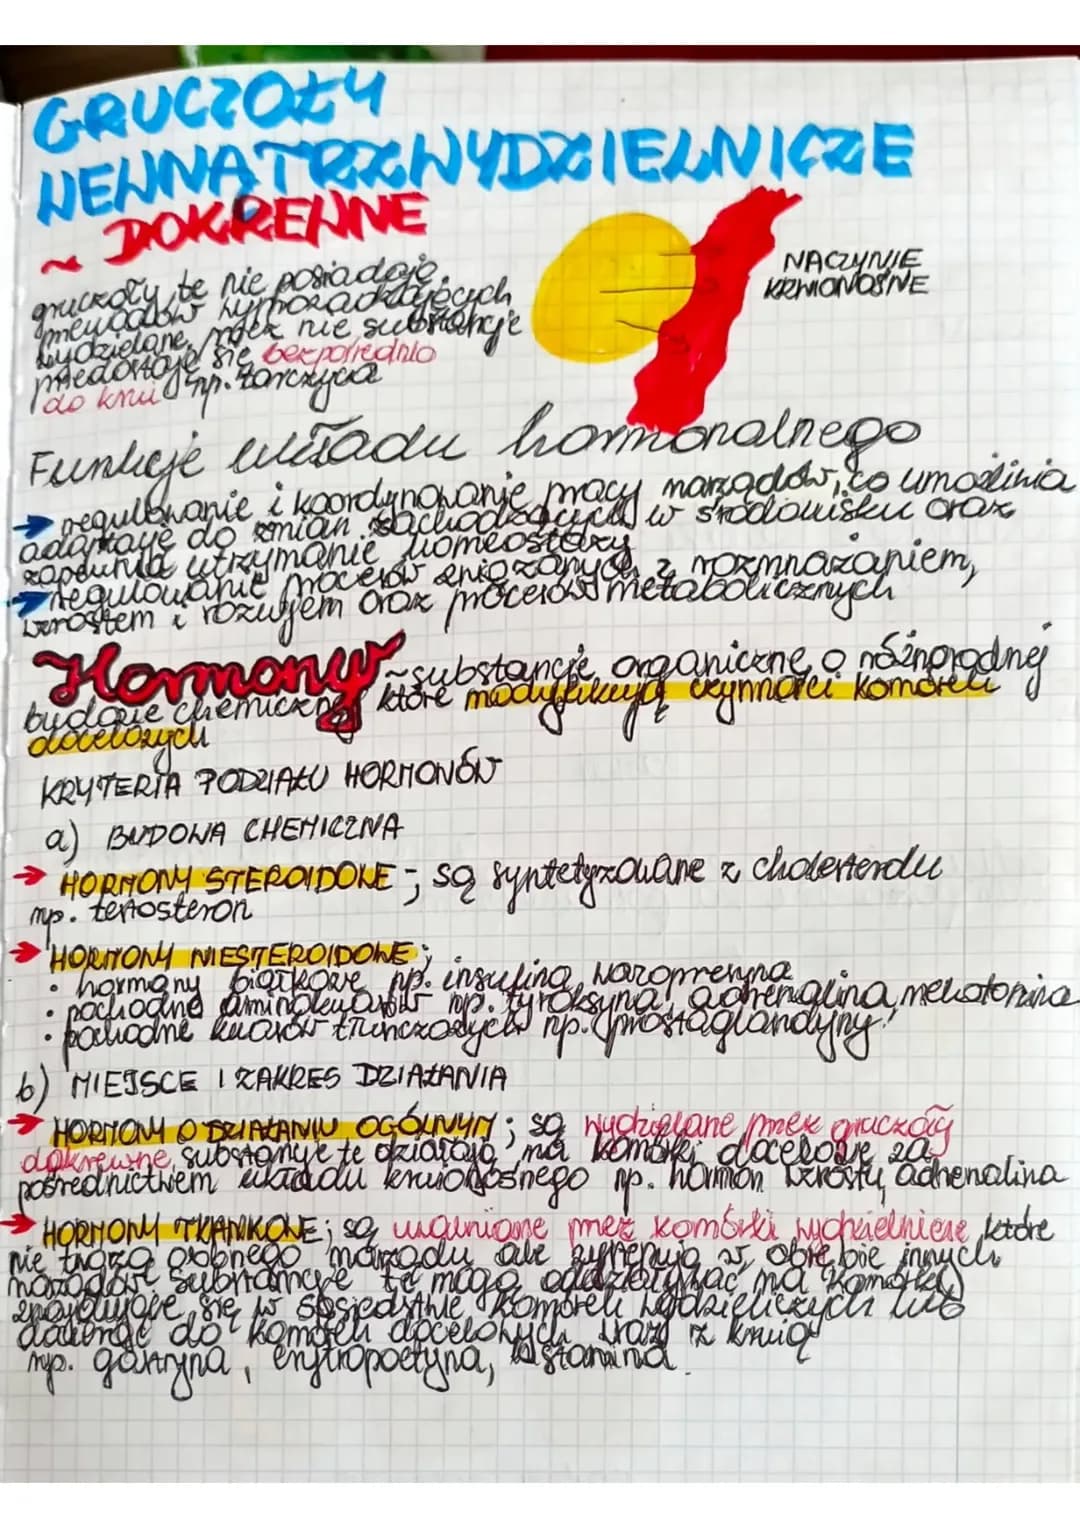 GRUCZOŁY
WEWNĄTRZWYDZIELNICZE
~ DOKREWNE
gruczoły te nie posiadają
przewodów wyprowadzających
wydzielane przez nie substancje
przedostają się bezpośrednio
do krwi np. tarczyca
NACZYNIE
KRWIONOŚNE
Funkcje układu hormonalnego
→ regulowanie i koordynowanie pracy narządów, co umożliwia
adaptację do zmian zachodzących w środowisku oraz
zapewnia utrzymanie homeostazy
→ regulowanie procesów związanych z rozmnażaniem,
wzrostem i rozwojem oraz procesów metabolicznych
Hormony ~ substancje organiczne o różnorodnej
budowie chemicznej które modyfikują czynności komórek
docelowych
KRYTERIA PODZIAŁU HORMONÓW
a) BUDOWA CHEMICZNA
→ HORMONY STEROIDOWE -; są syntetyzowane z cholesterolu
np. testosteron
→ HORMONY NIESTEROIDOWE;
• hormony białkowe np. insulina, wazopresyna
• pochodne aminokwasów np. tyroksyna, adrenalina, melatonina
• pochodne kwasów tłuszczowych np. prostaglandyny
b) MIEJSCE I ZAKRES DZIAŁANIA
→ HORMONY O DZIAŁANIU OGÓLNYM; są wydzielane przez gruczoły
dokrewne, substancje te działają na komórki docelowe za
pośrednictwem układu krwionośnego np. hormon wzrostu, adrenalina
→ HORMONY TKANKOWE; są uwalniane przez komórki wydzielnicze, które
nie tworzą osobnego narządu ale występują w obrębie innych
narządów. Substancje te mogą oddziaływać na komórki
znajdujące się w sąsiedztwie komórek wydzielniczych lub
docierać do komórek docelowych wraz z krwią
np. gastryna, erytropoetyna, histamina.